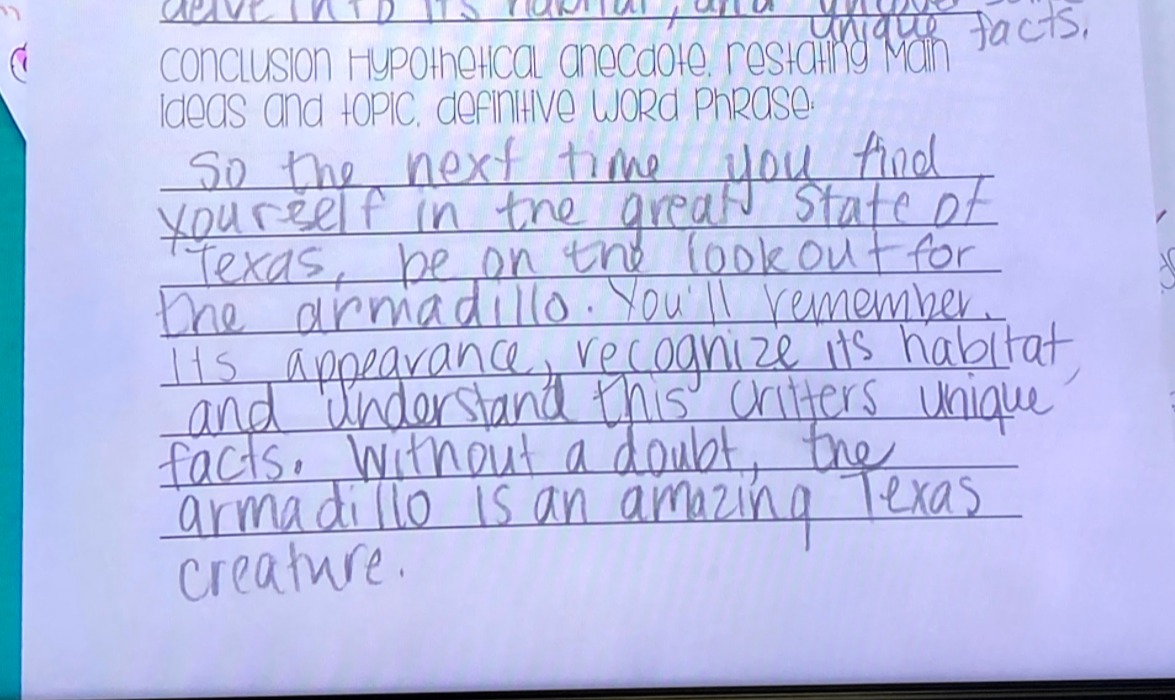 delve into its habitat, and unique
unique facts.
Conclusion Hypothetical anecdote, restating Main
ideas and topic, definitive word phrase.
So the next time you find
yourself in the great State of
Texas, be on the lookout for
the armadillo. You'll remember
its appearance, recognize its habitat,
and understand this critters unique
facts. Without a doubt, the
armadillo is an amazing Texas
creature.